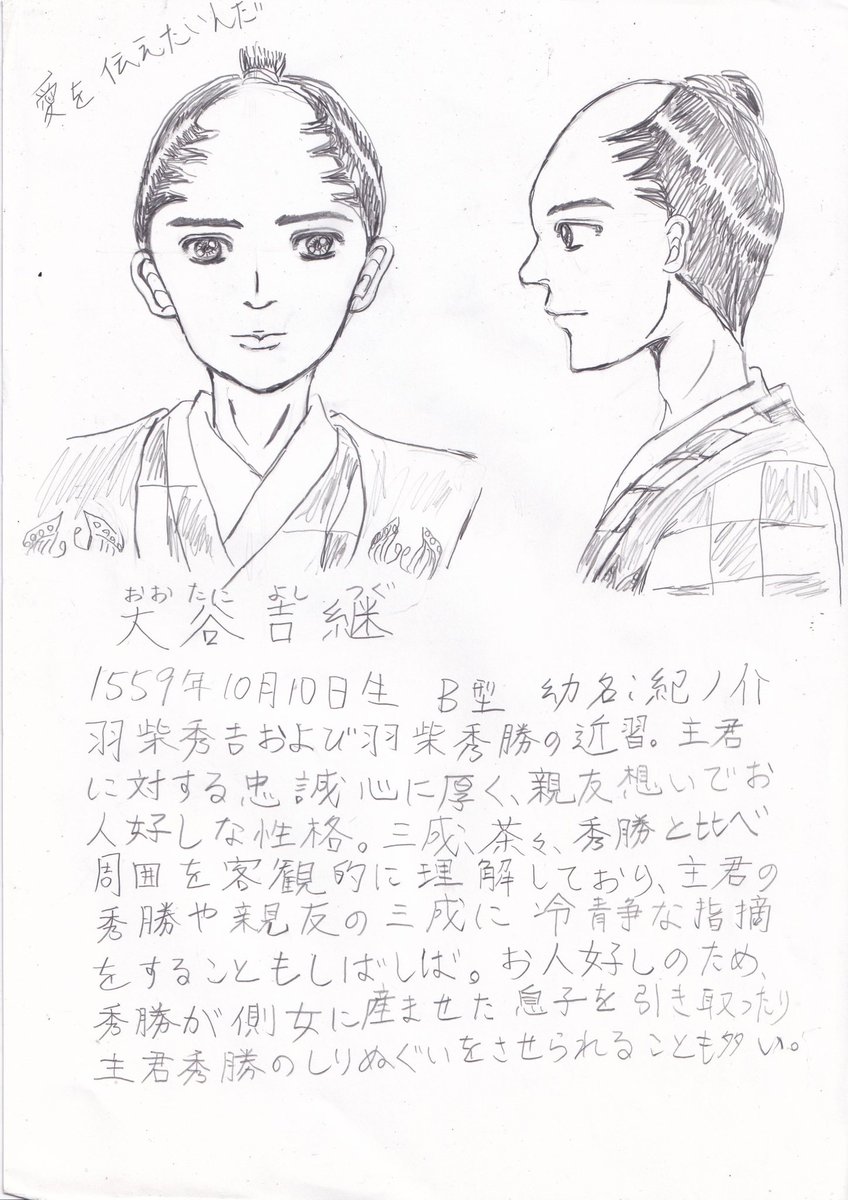 愛を伝えたいんだ
おおたによしつぐ
大谷吉継
1559年10月10日生 B型 幼名:紀ノ介
羽柴秀吉および羽柴秀勝の近習。主君
に対する忠誠心に厚く、親友想いでお
人好しな性格。三成、茶々、秀勝と比べ
周囲を客観的に理解しており、主君の
秀勝や親友の三成に冷静な指摘
をすることもしばしば。お人好しのため、
秀勝が側女に産ませた息子を引き取ったり
主君秀勝のしりぬぐいをさせられることも多い。